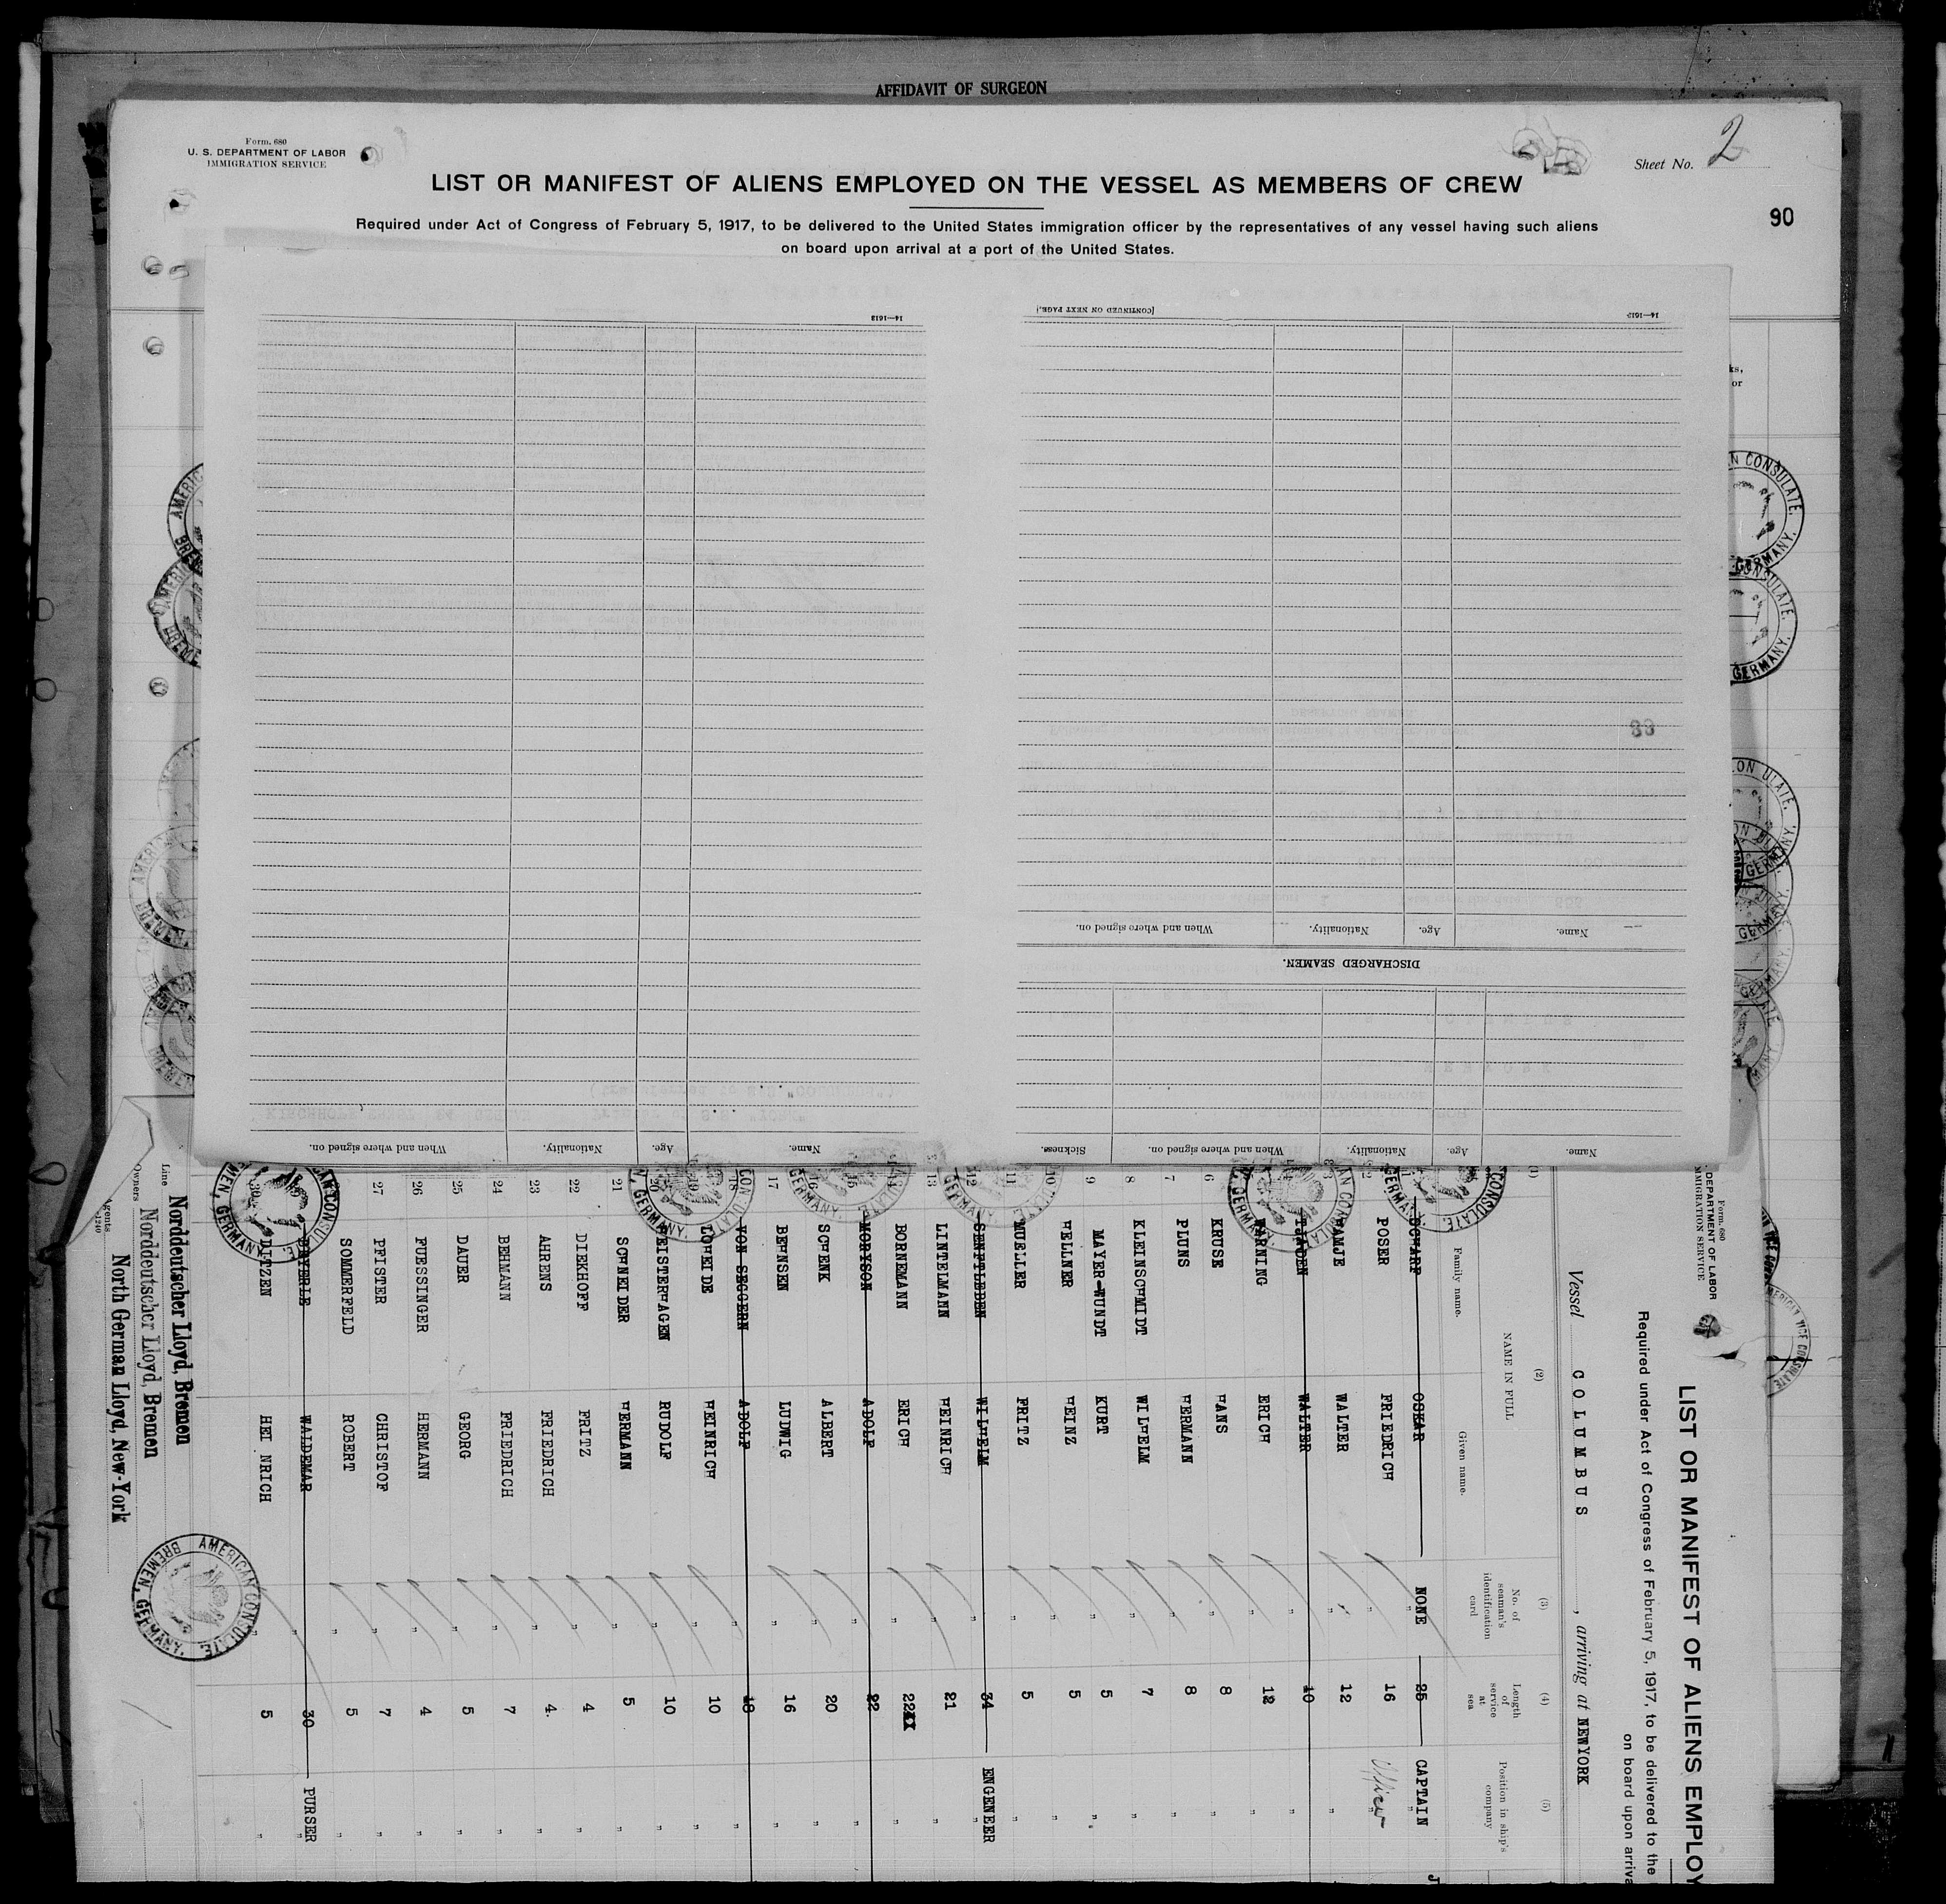 AFFIDAVIT OF SURGEON
Form. 680
U. S. DEPARTMENT OF LABOR
IMMIGRATION SERVICE
Sheet No. 2
LIST OR MANIFEST OF ALIENS EMPLOYED ON THE VESSEL AS MEMBERS OF CREW
90
Required under Act of Congress of February 5, 1917, to be delivered to the United States immigration officer by the representatives of any vessel having such aliens
on board upon arrival at a port of the United States.
[CONTINUED ON NEXT PAGE.]
Name. Age. Nationality. When and where signed on.
DISCHARGED SEAMEN.
Name. Age. Nationality. When and where signed on. Sickness.
Name. Age. Nationality. When and where signed on.
14—1613
88
Form 680
DEPARTMENT OF LABOR
IMMIGRATION SERVICE
LIST OR MANIFEST OF ALIENS EMPLOY
Required under Act of Congress of February 5, 1917, to be delivered to the
on board upon arriva
Vessel COLUMBUS, arriving at NEWYORK
(1) (2) (3) (4) (5)
NAME IN FULL
Family name. Given name.
No. of seaman's identification card
Length of service at sea
Position in ship's company
1 SCHARF OSKAR NONE 25 CAPTAIN
POSER FRIEDRICH " 16 Officer
HAMJE WALTER " 12 "
WALTER " 10 "
ERICH " 12 "
6 KRUSE HANS " 8 "
7 PLUNS HERMANN " 8 "
8 KLEINSCHMIDT WILHELM " 7 "
9 MAYER-WUNDT KURT " 5 "
10 HELLNER HEINZ " 5 "
11 MUELLER FRITZ " 5 "
12 SENFTLEBEN WILHELM " 34 ENGENEER
13 LINTELMANN HEINRICH " 21 "
14 BORNEMANN ERICH " 22 "
15 MORYSON ADOLF " 22 "
16 SCHENK ALBERT " 20 "
17 BEHNSEN LUDWIG " 16 "
18 VON SEGGERN ADOLF " 18 "
19 LOHEIDE HEINRICH " 10 "
20 MEISTERHAGEN RUDOLF " 10 "
21 SCHNEIDER HERMANN " 5 "
22 DIEKHOFF FRITZ " 4 "
23 AHRENS FRIEDRICH " 4. "
24 BEHMANN FRIEDRICH " 7 "
25 DAUER GEORG " 5 "
26 FUESSINGER HERMANN " 4 "
27 PFISTER CHRISTOF " 7 "
SOMMERFELD ROBERT " 5 "
BAYERLE WALDEMAR " 30 PURSER
30 HEINRICH " 5 "
Line Norddeutscher Lloyd, Bremen
Owners Norddeutscher Lloyd, Bremen
Agents North German Lloyd, New-York
AMERICAN CONSULATE. BREMEN, GERMANY.